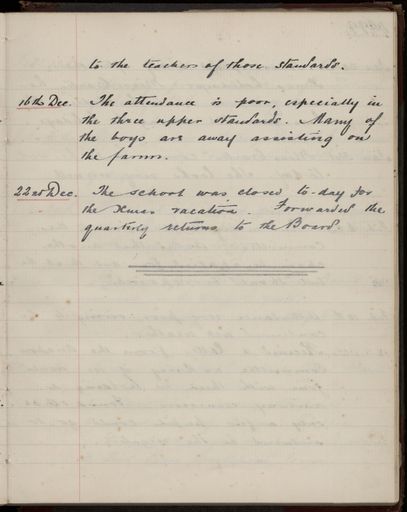 to the teachers of those standards.
16th Dec. The attendance is poor, especially in
the three upper standards. Many of
the boys are away assisting on
the farms.
22nd Dec. The school was closed to-day for
the Xmas vacation. Forwarded the
quarterly returns to the Board.